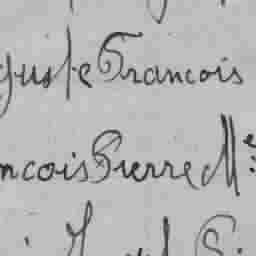 guste Francois
ncois Pierre Me